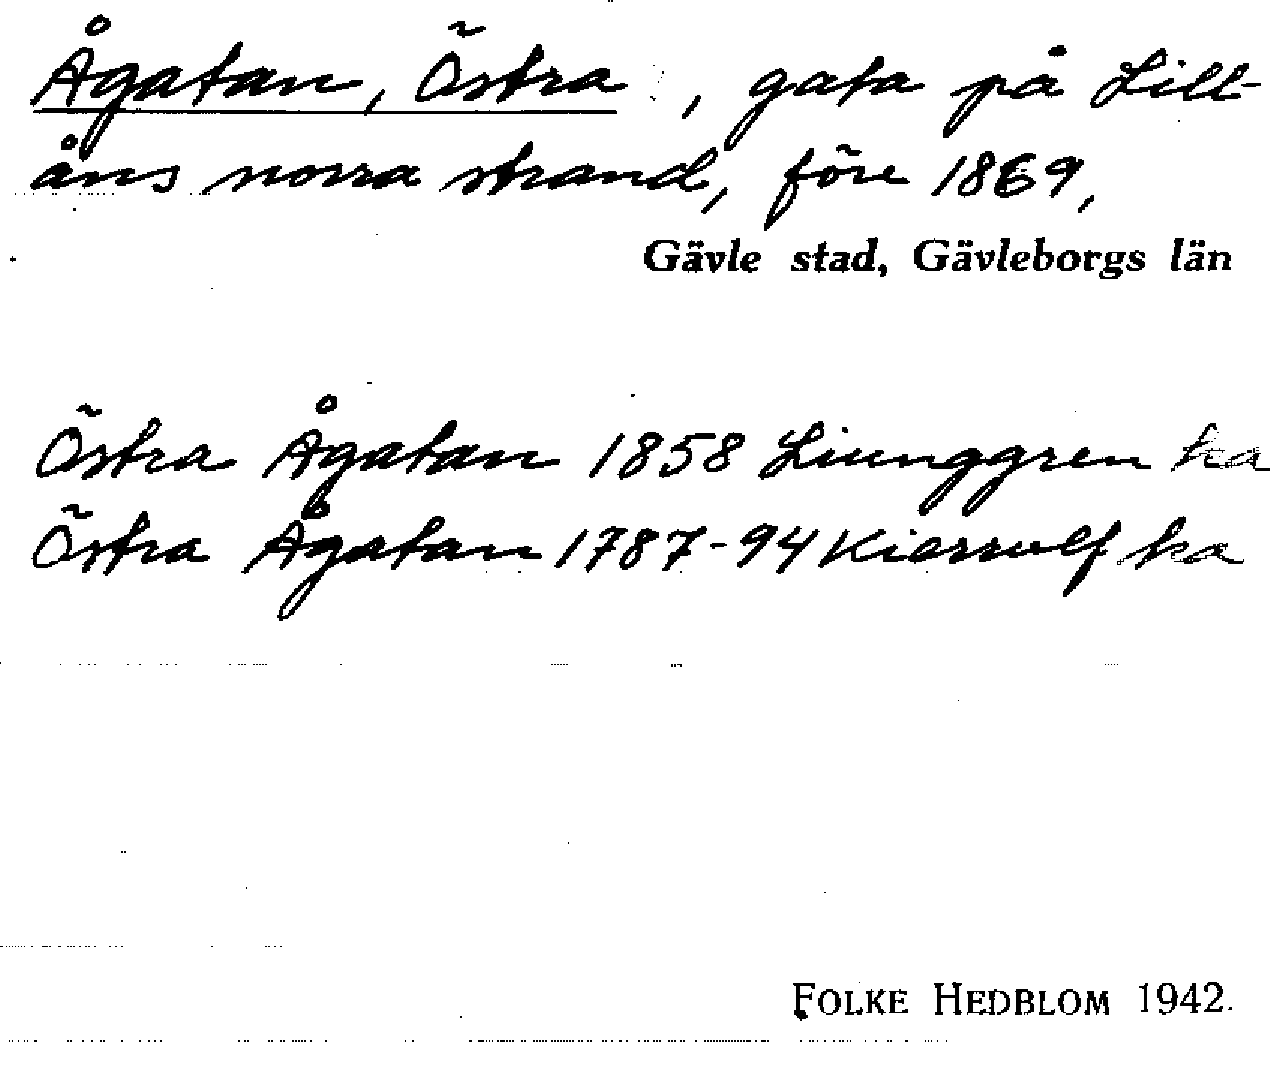 Ågatan, Östra, gata på Lill-
åns norra strand, före 1869,
Gävle stad, Gävleborgs län
Östra Ågatan 1858 Liunggren ka
Östra Ågatan 1787-94 Kierrulf ka
FOLKE HEDBLOM 1942.